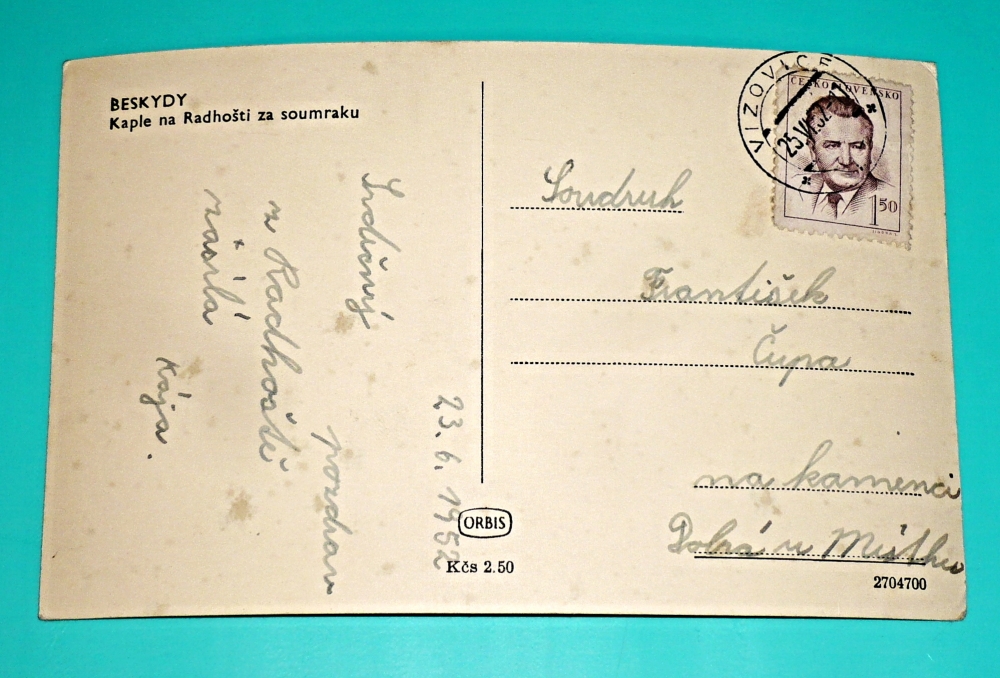 BESKYDY
Kaple na Radhošti za soumraku
23. 6. 1952
Srdečný
pozdrav
z Radhoště
zasílá
Kája.
VIZOVICE
25.VI.52
ČESKOSLOVENSKO
1 50
Soudruh
František
Čupa
na kamenci
Dobrá u Místku
ORBIS
Kčs 2.50
2704700